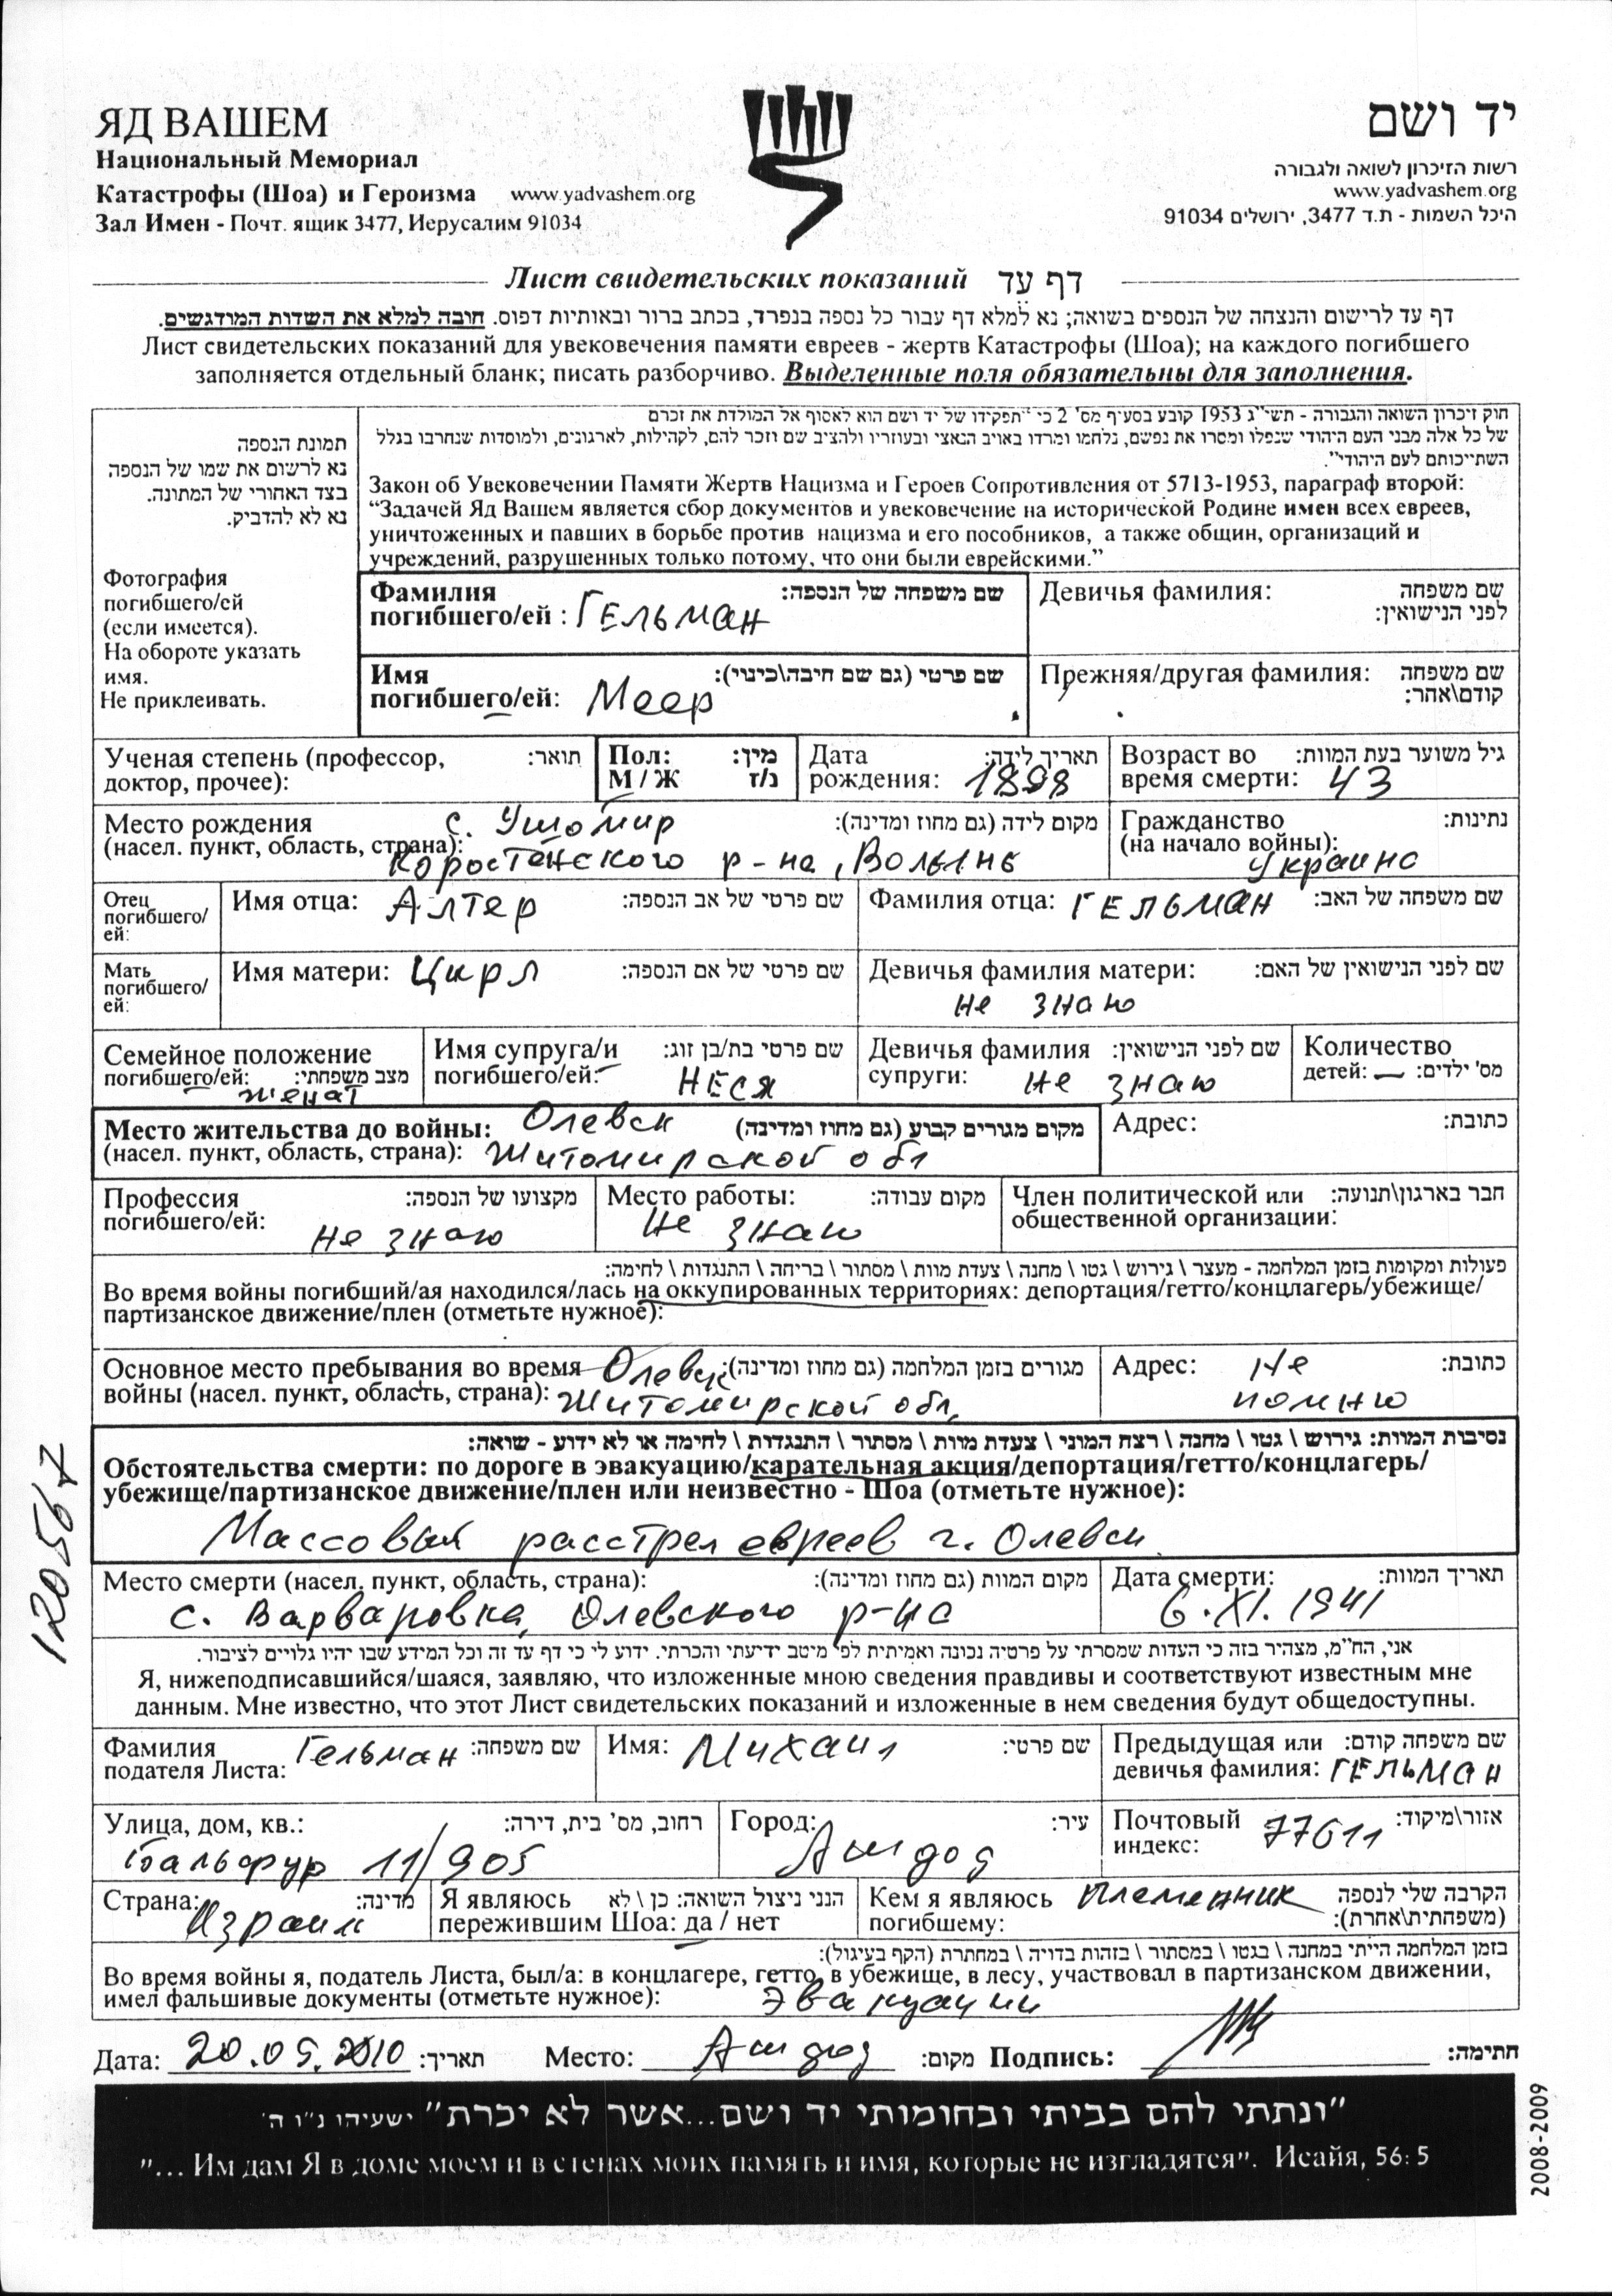 ЯД ВАШЕМ
Национальный Мемориал
Катастрофы (Шоа) и Героизма www.yadvashem.org
Зал Имен - Почт. ящик 3477, Иерусалим 91034
יד ושם
רשות הזיכרון לשואה ולגבורה
www.yadvashem.org
היכל השמות - ת.ד 3477, ירושלים 91034
Лист свидетельских показаний דף עד
דף עד לרישום והנצחה של הנספים בשואה; נא למלא דף עבור כל נספה בנפרד, בכתב ברור ובאותיות דפוס. חובה למלא את השדות המודגשים.
Лист свидетельских показаний для увековечения памяти евреев - жертв Катастрофы (Шоа); на каждого погибшего
заполняется отдельный бланк; писать разборчиво. Выделенные поля обязательны для заполнения.
תמונת הנספה
נא לרשום את שמו של הנספה
בצד האחורי של המתונה.
נא לא להדביק.
Фотография
погибшего/ей
(если имеется).
На обороте указать
имя.
Не приклеивать.
חוק זיכרון השואה והגבורה - תשי"ג 1953 קובע בסעיף מס' 2 כי "תפקידו של יד ושם הוא לאסוף אל המולדת את זכרם
של כל אלה מבני העם היהודי שנפלו ומסרו את נפשם, נלחמו ומרדו באויב הנאצי ובעוזריו ולהציב שם וזכר להם, לקהילות, לארגונים, ולמוסדות שנחרבו בגלל
השתייכותם לעם היהודי".
Закон об Увековечении Памяти Жертв Нацизма и Героев Сопротивления от 5713-1953, параграф второй:
“Задачей Яд Вашем является сбор документов и увековечение на исторической Родине имен всех евреев,
уничтоженных и павших в борьбе против нацизма и его пособников, а также общин, организаций и
учреждений, разрушенных только потому, что они были еврейскими.”
Фамилия שם משפחה של הנספה:
погибшего/ей : Гельман
Девичья фамилия: שם משפחה
לפני הנישואין:
Имя שם פרטי (גם שם חיבה\כינוי):
погибшего/ей: Меер
Прежняя/другая фамилия: שם משפחה
קודם\אחר:
Ученая степень (профессор, תואר:
доктор, прочее):
Пол: מין:
М / Ж ז/נ
Дата תאריך לידה:
рождения: 1898
Возраст во גיל משוער בעת המוות:
время смерти: 43
Место рождения с. Ушомир מקום לידה (גם מחוז ומדינה):
(насел. пункт, область, страна): Коростенского р-на, Волынь
Гражданство נתינות:
(на начало войны):
Украина
Отец
погибшего/
ей:
Имя отца: Алтер שם פרטי של אב הנספה:
Фамилия отца: ГЕЛЬМАН שם משפחה של האב:
Мать
погибшего/
ей:
Имя матери: Цирл שם פרטי של אם הנספה:
Девичья фамилия матери: שם לפני הנישואין של האם:
не знаю
Семейное положение
погибшего/ей: מצב משפחתי:
женат
Имя супруга/и שם פרטי בת/בן זוג:
погибшего/ей: НЕСЯ
Девичья фамилия שם לפני הנישואין:
супруги: не знаю
Количество
детей: — מס' ילדים:
Место жительства до войны: Олевск מקום מגורים קבוע (גם מחוז ומדינה)
(насел. пункт, область, страна): Житомирской обл
Адрес: כתובת:
Профессия מקצועו של הנספה:
погибшего/ей: Не знаю
Место работы: מקום עבודה:
Не знаю
Член политической или חבר בארגון\תנועה:
общественной организации:
פעולות ומקומות בזמן המלחמה - מעצר \ גירוש \ גטו \ מחנה \ צעדת מוות \ מסתור \ בריחה \ התנגדות \ לחימה:
Во время войны погибший/ая находился/лась на оккупированных территориях: депортация/гетто/концлагерь/убежище/
партизанское движение/плен (отметьте нужное):
Основное место пребывания во время Олевск מגורים בזמן המלחמה (גם מחוז ומדינה):
войны (насел. пункт, область, страна): Житомирской обл.
Адрес: Не כתובת:
помню
נסיבות המוות: גירוש \ גטו \ מחנה \ רצח המוני \ צעדת מוות \ מסתור \ התנגדות \ לחימה או לא ידוע - שואה:
Обстоятельства смерти: по дороге в эвакуацию/карательная акция/депортация/гетто/концлагерь/
убежище/партизанское движение/плен или неизвестно - Шоа (отметьте нужное):
Массовый расстрел евреев г. Олевск
Место смерти (насел. пункт, область, страна): מקום המוות (גם מחוז ומדינה):
с. Варваровка, Олевского р-на
Дата смерти: תאריך המוות:
6.XI.1941
אני, הח"מ, מצהיר בזה כי העדות שמסרתי על פרטיה נכונה ואמיתית לפי מיטב ידיעתי והכרתי. ידוע לי כי דף עד זה וכל המידע שבו יהיו גלויים לציבור.
Я, нижеподписавшийся/шаяся, заявляю, что изложенные мною сведения правдивы и соответствуют известным мне
данным. Мне известно, что этот Лист свидетельских показаний и изложенные в нем сведения будут общедоступны.
Фамилия Гельман שם משפחה:
подателя Листа:
Имя: Михаил שם פרטי:
Предыдущая или שם משפחה קודם:
девичья фамилия: ГЕЛЬМАН
Улица, дом, кв.: רחוב, מס' בית, דירה:
Бальфур 11/905
Город: עיר:
Ашдод
Почтовый 77611 אזור\מיקוד:
индекс:
Страна: מדינה:
Израил
Я являюсь הנני ניצול השואה: כן \ לא
пережившим Шоа: да / нет
Кем я являюсь племянник הקרבה שלי לנספה
погибшему: (משפחתית\אחרת):
בזמן המלחמה הייתי במחנה \ בגטו \ במסתור \ בזהות בדויה \ במחתרת (הקף בעיגול):
Во время войны я, податель Листа, был/а: в концлагере, гетто, в убежище, в лесу, участвовал в партизанском движении,
имел фальшивые документы (отметьте нужное): Эвакуации
Дата: 20.05.2010 תאריך: Место: Ашдод מקום: Подпись: חתימה:
"ונתתי להם בביתי ובחומותי יד ושם...אשר לא יכרת" ישעיהו נ"ו ה'
"... Им дам Я в доме моем и в стенах моих память и имя, которые не изгладятся". Исайя, 56: 5
120567
2008-2009